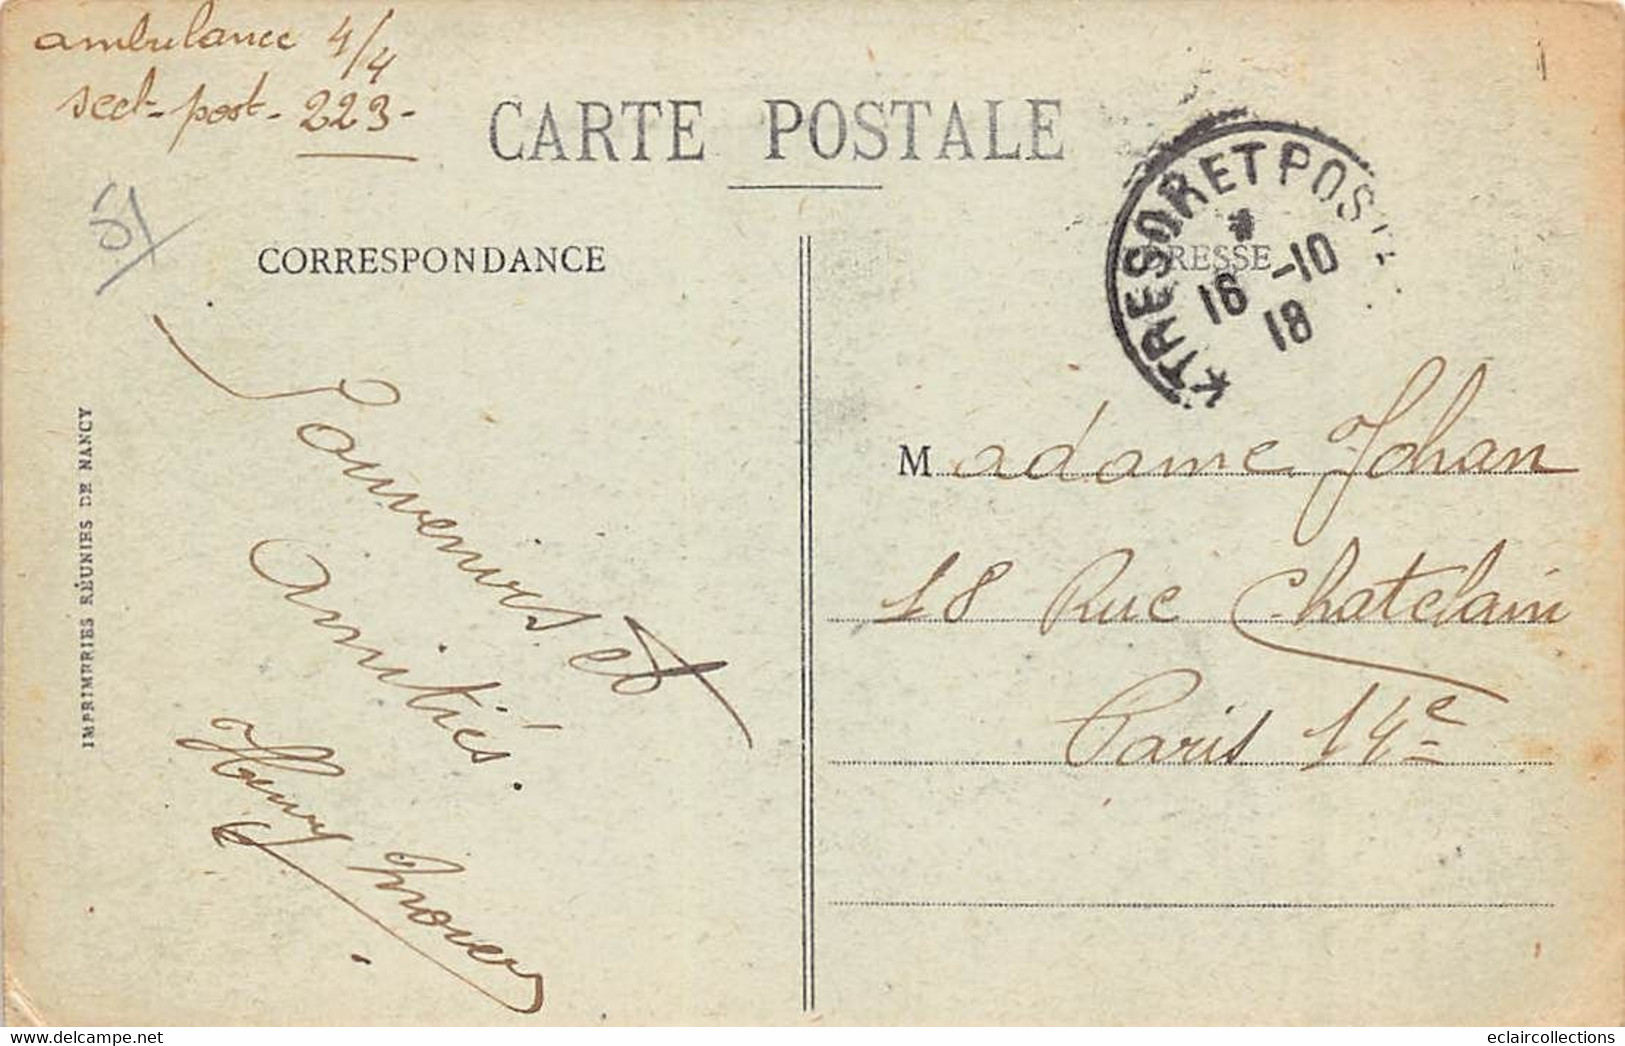 ambulance 4/4
sect-post-223-
CARTE POSTALE
51
CORRESPONDANCE
TRESOR ET POSTE
*
16 -10
18
Souvenirs et
amitiés.
Henry
IMPRIMERIES RÉUNIES DE NANCY
Madame Johan
18 Rue Chatelain
Paris 14e
www.delcampe.net
eclaircollections